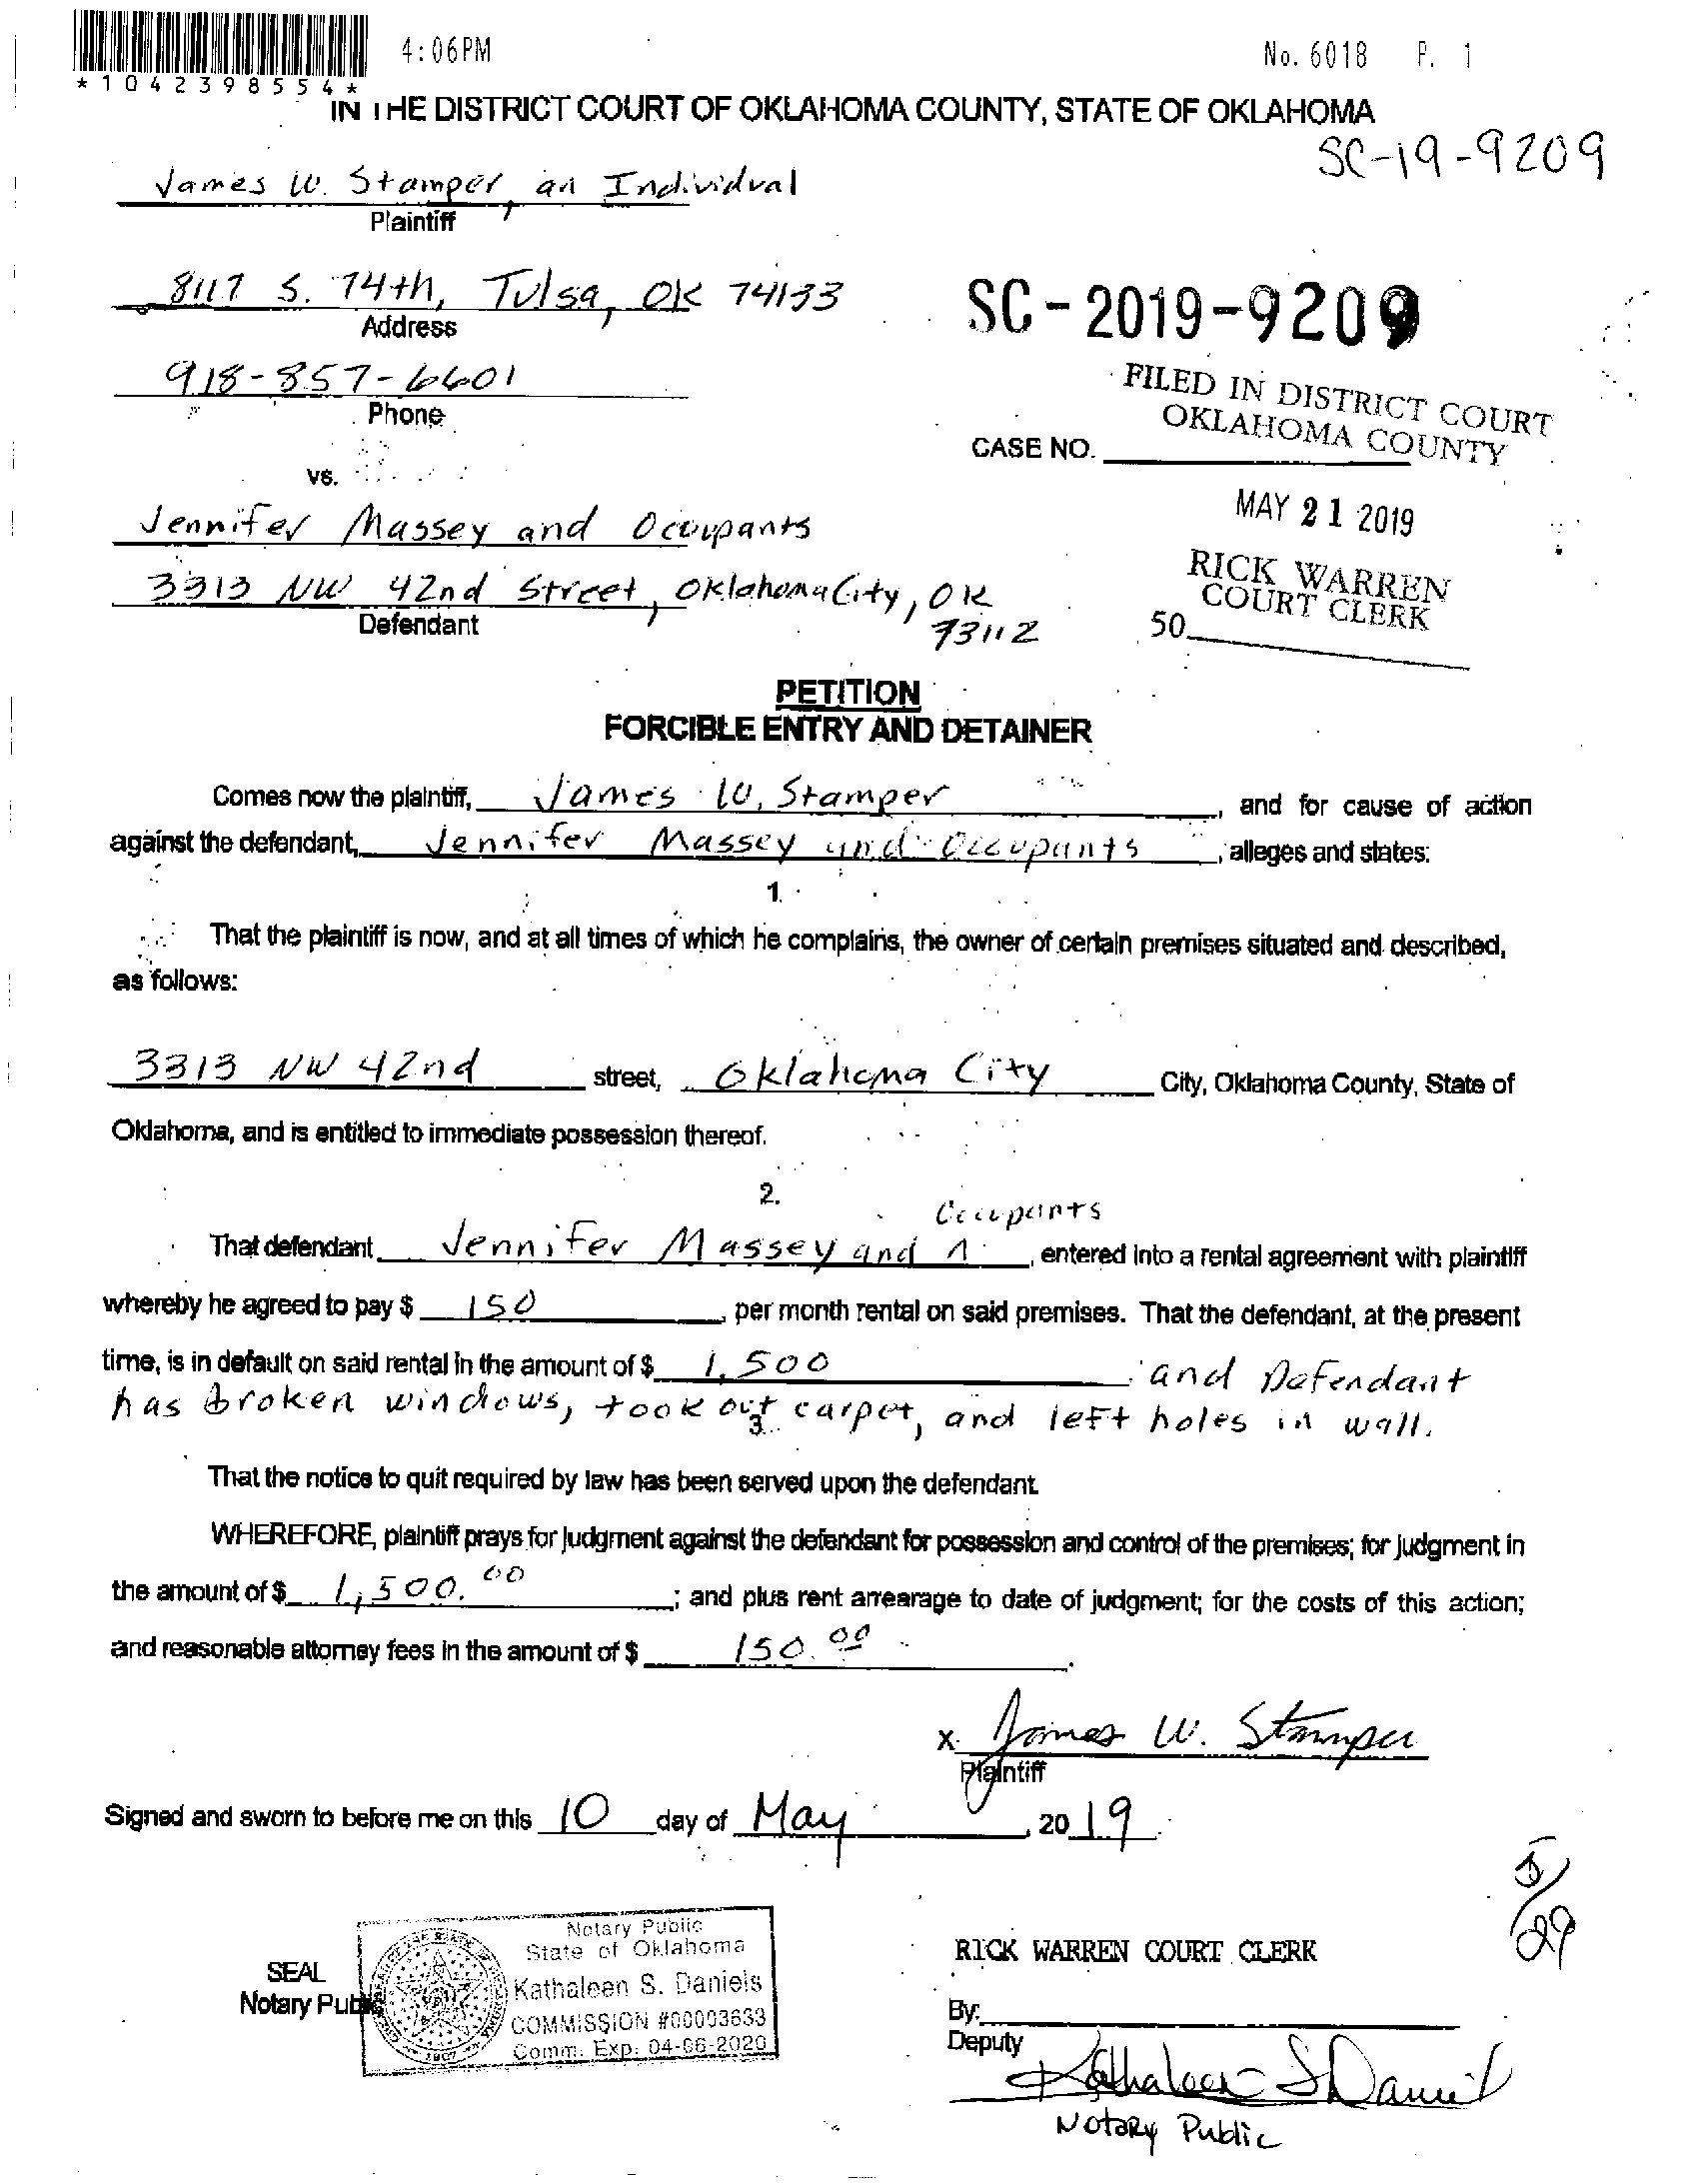 4:06PM No. 6018 P. 1
*1042398554*
IN THE DISTRICT COURT OF OKLAHOMA COUNTY, STATE OF OKLAHOMA
SC-19-9209
James W. Stamper, an Individual
Plaintiff
8117 S. 74th, Tulsa, OK 74133
Address
SC-2019-9209
918-857-6601
Phone
FILED IN DISTRICT COURT
OKLAHOMA COUNTY
CASE NO.
vs.
MAY 21 2019
Jennifer Massey and Occupants
3313 NW 42nd Street, Oklahoma City, OK
73112
Defendant
RICK WARREN
COURT CLERK
50
PETITION
FORCIBLE ENTRY AND DETAINER
Comes now the plaintiff, James W. Stamper, and for cause of action
against the defendant, Jennifer Massey and Occupants, alleges and states:
1.
That the plaintiff is now, and at all times of which he complains, the owner of certain premises situated and described,
as follows:
3313 NW 42nd street, Oklahoma City City, Oklahoma County, State of
Oklahoma, and is entitled to immediate possession thereof.
2.
Occupants
That defendant Jennifer Massey and ^, entered into a rental agreement with plaintiff
whereby he agreed to pay $ 150, per month rental on said premises. That the defendant, at the present
time, is in default on said rental in the amount of $ 1,500 and Defendant
has broken windows, took out carpet, and left holes in wall.
3.
That the notice to quit required by law has been served upon the defendant.
WHEREFORE, plaintiff prays for judgment against the defendant for possession and control of the premises; for judgment in
the amount of $ 1,500.00; and plus rent arrearage to date of judgment; for the costs of this action;
and reasonable attorney fees in the amount of $ 150.00.
x James W. Stamper
Plaintiff
Signed and sworn to before me on this 10 day of May, 2019.
5/29
SEAL
Notary Public
Notary Public
State of Oklahoma
Kathaleen S. Daniels
COMMISSION #00003633
Comm. Exp. 04-06-2020
RICK WARREN COURT CLERK
By:
Deputy
Kathaleen S Daniels
Notary Public